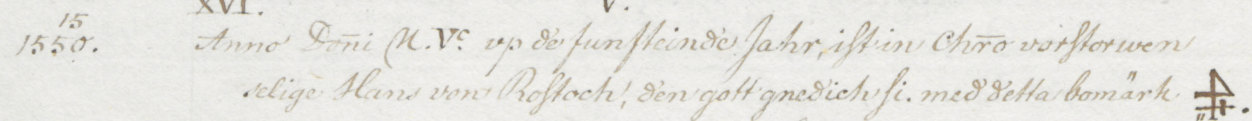 XVI. V.
15
1550. Anno Dom̄i M.Vᶜ up de funfteinde Jahr, ist in Chr̄o vorstorwen
selige Hans von Rostock, den gott gnedich si. med detta bomärk